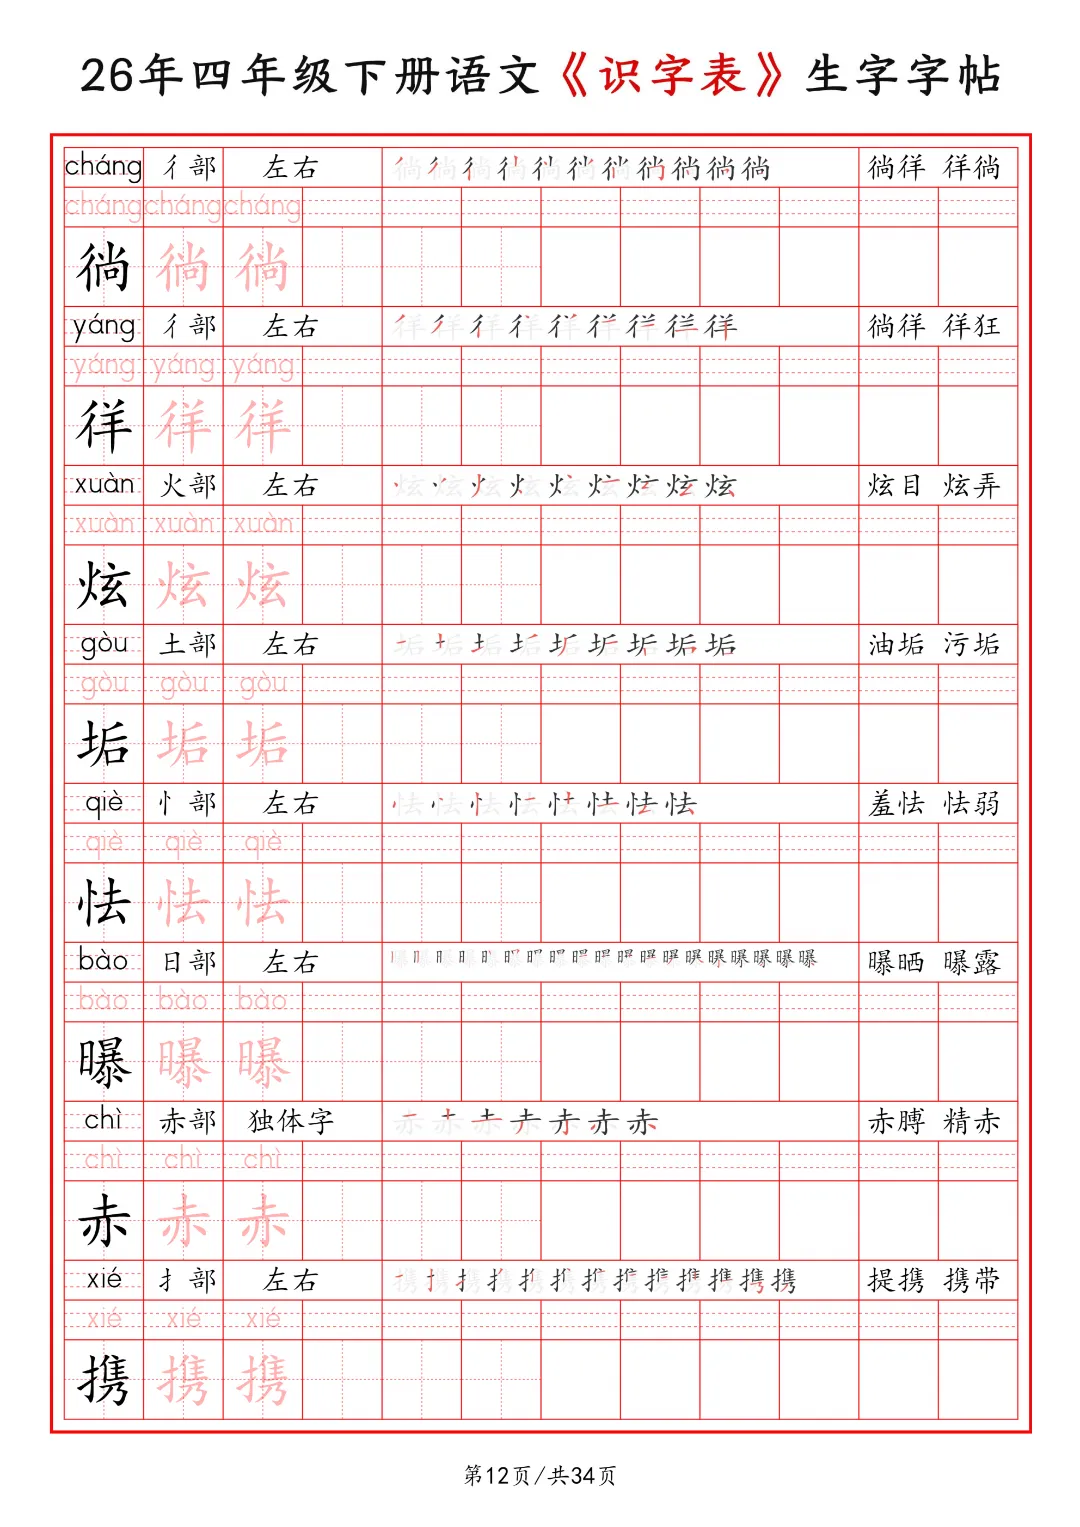 26年四年级下册语文《识字表》生字字帖
cháng 彳部 左右 徜徜徜徜徜徜徜徜徜徜徜 徜徉 徉徜
cháng cháng cháng
徜 徜 徜
yáng 彳部 左右 徉徉徉徉徉徉徉徉徉 徜徉 徉狂
yáng yáng yáng
徉 徉 徉
xuàn 火部 左右 炫炫炫炫炫炫炫炫炫 炫目 炫弄
xuàn xuàn xuàn
炫 炫 炫
gòu 土部 左右 垢垢垢垢垢垢垢垢垢 油垢 污垢
gòu gòu gòu
垢 垢 垢
qiè 忄部 左右 怯怯怯怯怯怯怯怯 羞怯 怯弱
qiè qiè qiè
怯 怯 怯
bào 日部 左右 曝曝曝曝曝曝曝曝曝曝曝曝曝曝曝曝曝曝曝 曝晒 曝露
bào bào bào
曝 曝 曝
chì 赤部 独体字 赤赤赤赤赤赤赤 赤膊 精赤
chì chì chì
赤 赤 赤
xié 扌部 左右 携携携携携携携携携携携携携 提携 携带
xié xié xié
携 携 携
第12页/共34页